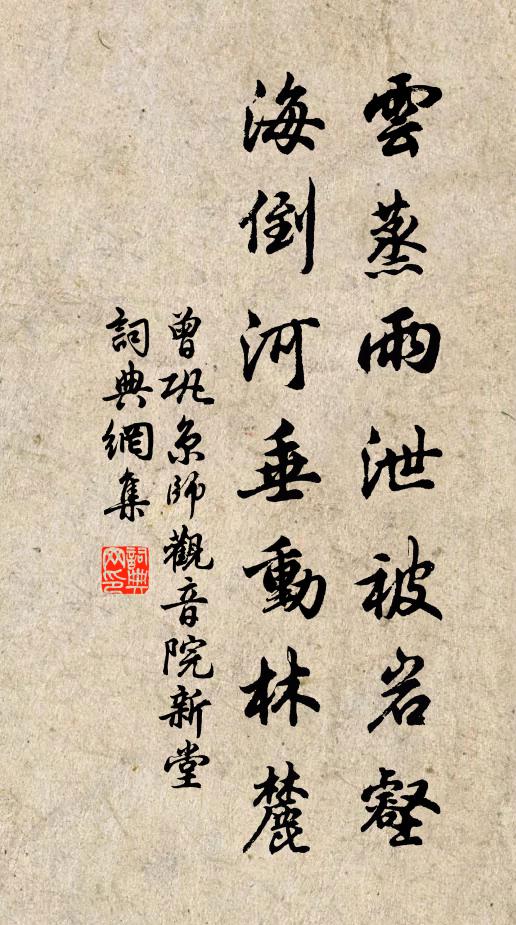 雲蒸雨泄被岩壑
海倒河垂動林麓
曾巩京師觀音院新堂
詞典網集
詞典网印